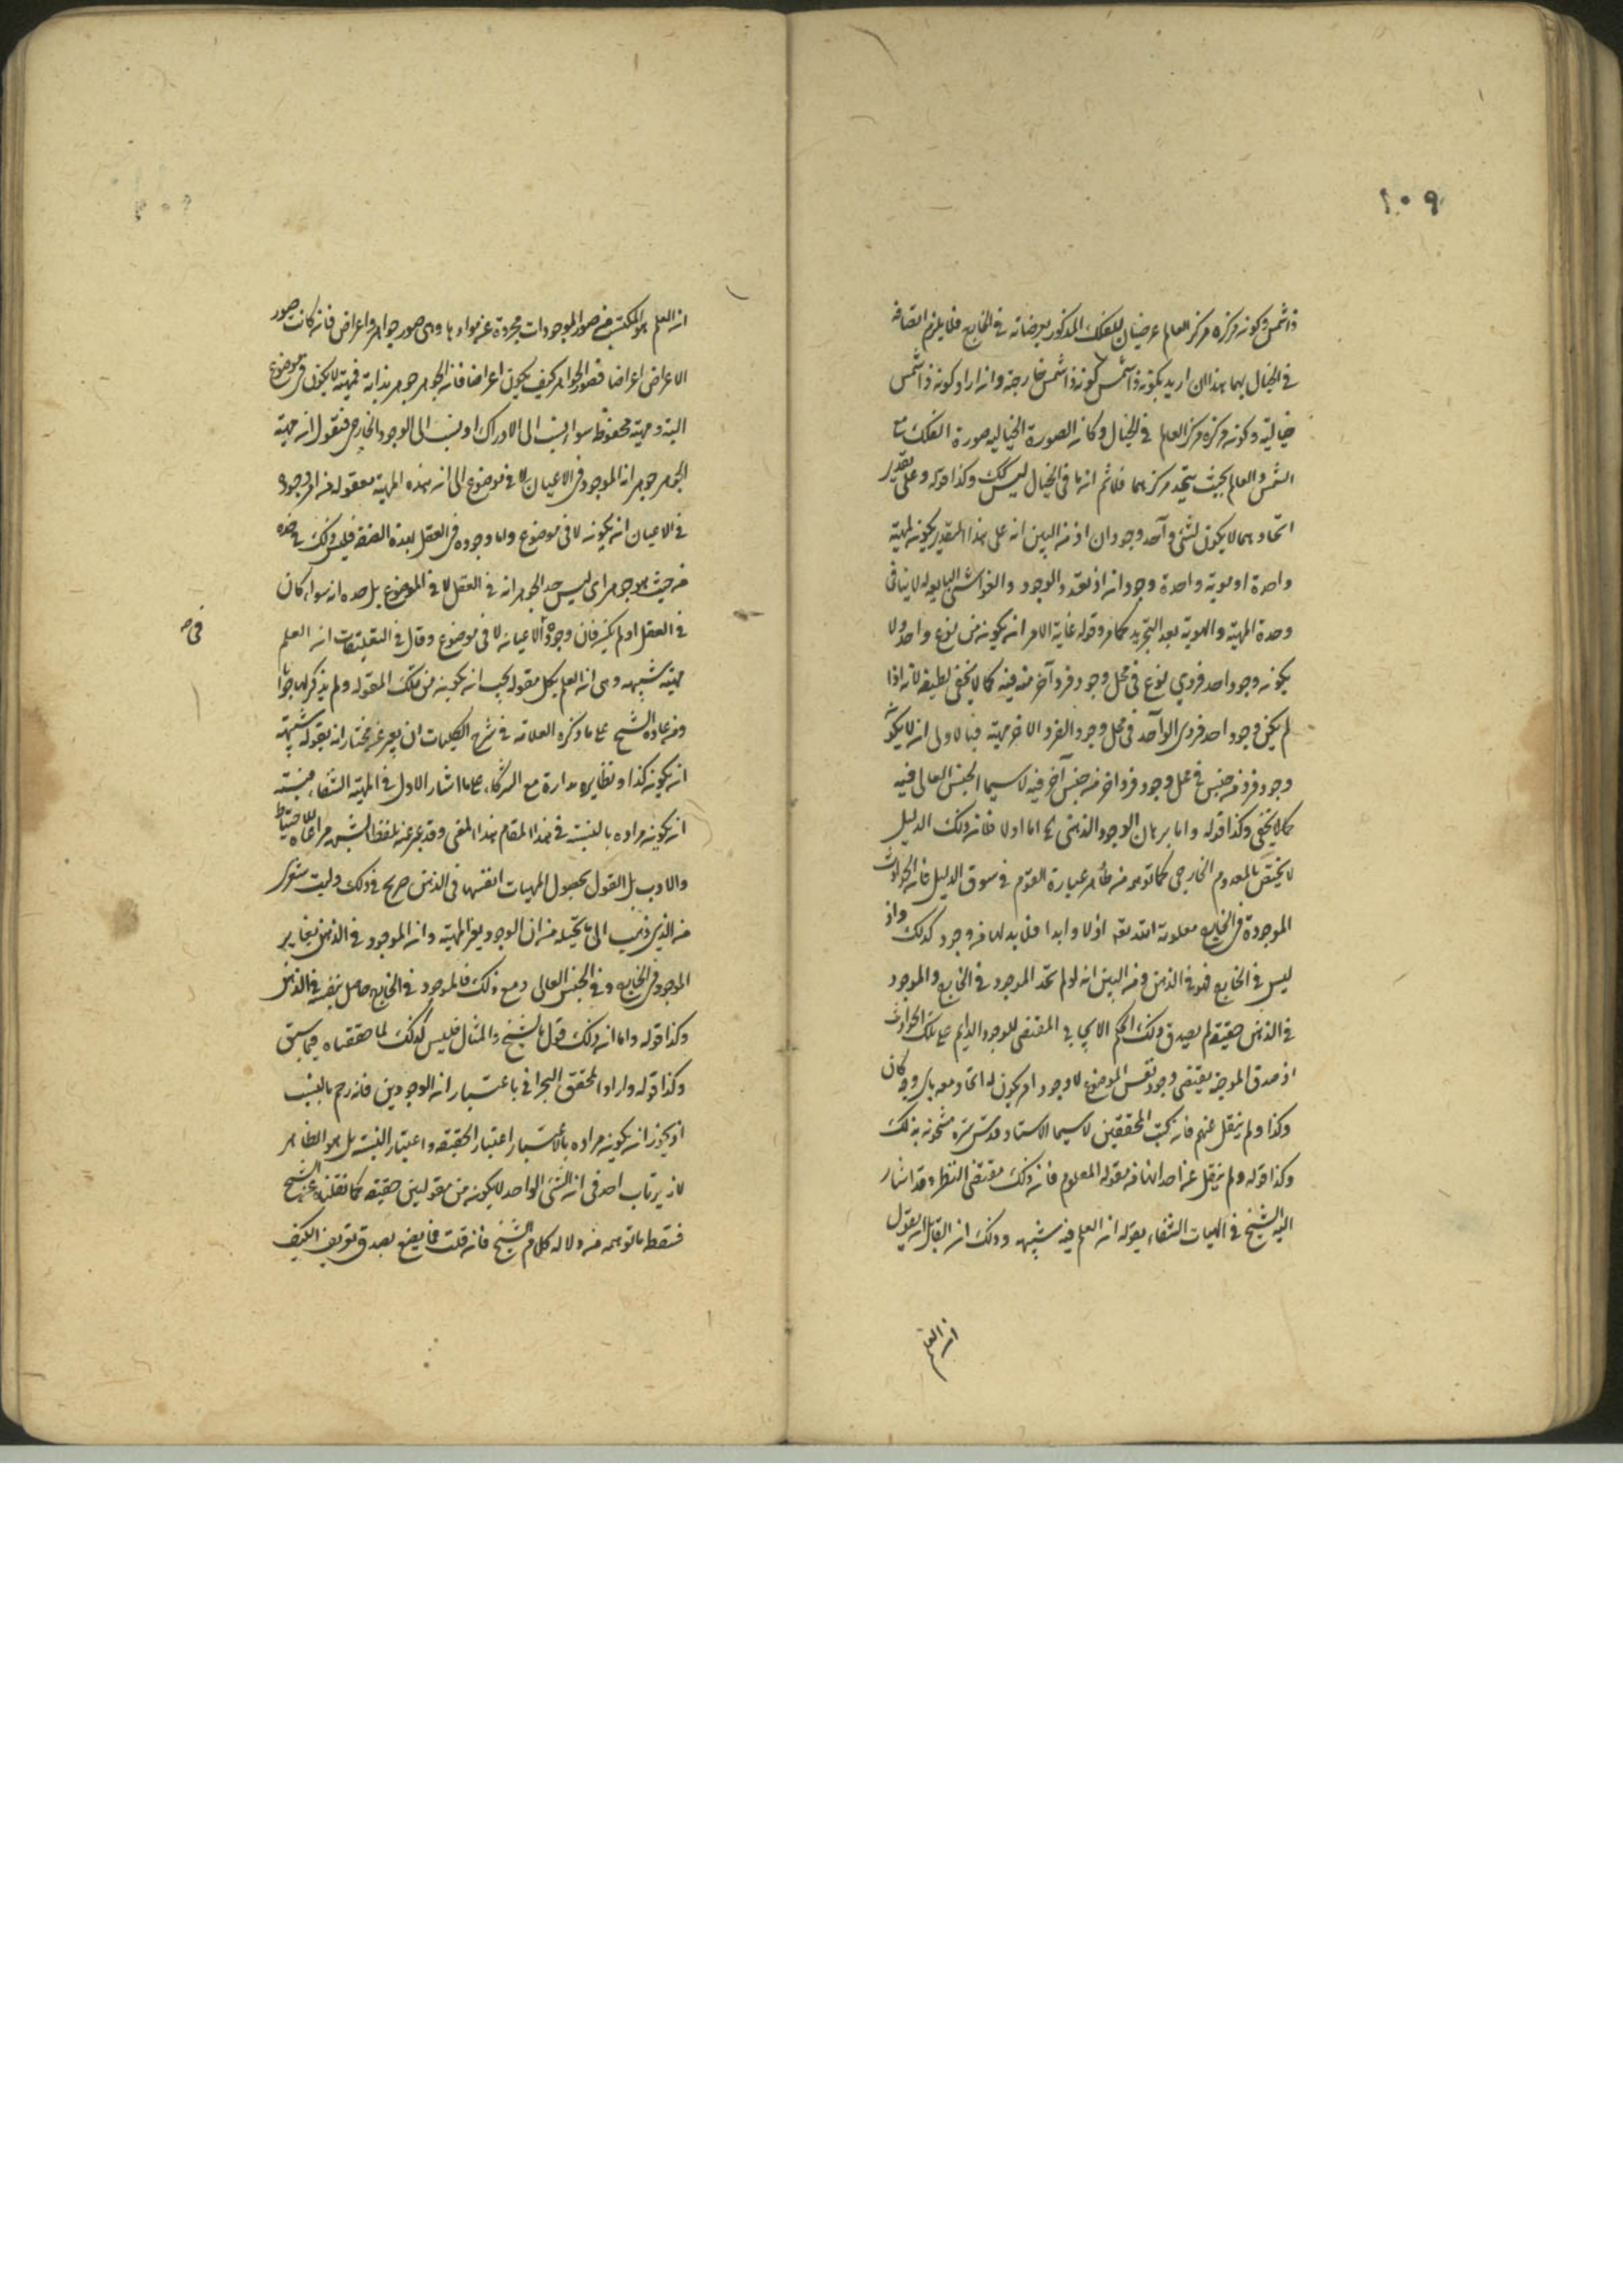 ١٠٩
ذا شمس وكونه مركزه مركز العالم عرضيان للفلك المذكور يعرضانه فى الخارج فلا يلزم اتصافه
فى الخيال بهما بهذا ان اريد بكونه ذا شمس كونه ذا شمس خارجة وان اراد كونه ذا شمس
خيالية وكونه مركزه مركز العالم فى الخيال وكانه الصورة الخيالية صورة الفلك مع
الشمس والعالم بحيث يتحد مركزهما فلا ثم انها فى الخيال ليس كك وكذا قوله وعلى تقدير
اتحادهما لا يكون لشئ واحد وجودان اذ من البين انه على هذا التقدير يكون لمهية
واحدة او هوية واحدة وجودان اذ تعدد الوجود والغواشى التابعة له لا ينافى
وحدة المهية والهوية بعد التجريد كما مر وقوله غاية الامر ان يكون من نوع واحد ولا
يكون وجود احد فردي نوع فى محل وجود فرد آخر منه فيه كما لا يخفى لطيفة لانه اذا
لم يكن وجود احد فردى الواحد فى محل وجود الفرد الاخر مهية فبالاولى ان لا يكون
وجود فرد من جنس فى محل وجود فرد اخر من جنس آخر فيه لا سيما الجنس العالى فيه
كما لا يخفى وكذا قوله واما برهان الوجود الذهنى الخ اما اولا فلان ذلك الدليل
لا يختص بالمعدوم الخارجى كما توهم من ظاهر عبارة القوم فى سوق الدليل فان الحوادث
الموجودة فى الخارج معلومة لله تعالى ازلا وابدا فلا بد لها من وجود كذلك واذ
ليس فى الخارج فهو فى الذهن ومن البين انه لو لم يتحد الموجود فى الخارج والموجود
فى الذهن حقيقة لم يصدق ذلك الحكم الايجابى المقتضى للوجود الدايم على تلك الحوادث
اذ صدق الموجبة يقتضى وجود نفس الموضوع لا وجود امر يكون له اتحاد معه باى وجه كان
وكذا ولم ينقل عنهم فان كتب المحققين لا سيما الاستاد قدس سره مشحونة بذلك
وكذا قوله ولم ينقل عن احد انها من مقولة المعلوم فان ذلك مقتضى النظر وقد اشار
اليه الشيخ فى الهيات الشفاء بقوله ان العلم فيه شبهة وذلك ان القائل ان يقول
ان العلم
ان العلم هو المكتسب من صور الموجودات مجردة عن موادها وهى صور جواهر واعراض فان كانت صور
الاعراض اعراضا فصور الجواهر كيف يكون اعراضا فان الجوهر جوهر بذاته فمهيته لا يكون فى موضوع
البتة ومهيته محفوظة سواء نسبت الى الادراك او نسبت الى الوجود الخارجى فنقول ان مهية
الجوهر جوهر انه الموجود فى الاعيان لا فى موضوع الى ان هذه المهية معقولة من امر وجوده
فى الاعيان ان يكون لا فى موضوع واما وجوده فى العقل بهذه الصفة فليس ذلك فى حده
من حيث هو جوهر اى ليس حد الجوهر انه فى العقل لا فى الموضوع بل حده انه سواء كان
فى العقل او لم يكن فان وجوده الاعيان لا فى موضوع وقال فى التعليقات ان العلم
فى صح
مهيته شبهة وهى ان العلم بكل مقولة يجب ان يكون من تلك المقولة ولم يذكر لها جوابا
ومن عادة الشيخ على ما ذكره العلامة فى شرح الكليات ان يعبر عن مختاره بقوله يشبه
ان يكون كذا ونظايره مداراة مع الشركاء على ما اشار الاول فى الهية الشفاء
ان يكون مراده بالنسبة فى هذا المقام هذا المعنى وقد يعبر عنه بلفظ الشبه مراعاة للاحتياط
والادب بل القول بحصول المهيات انفسها فى الذهن صريح فى ذلك وليت شعرى
من الذى ذهب الى ما تخيله من ان الوجود يغير المهية وان الموجود فى الذهن يغاير
الموجود فى الخارج وفى الجنس العالى ومع ذلك فالموجود فى الخارج حاصل بنفسه فى الذهن
وكذا قوله واما ان ذلك قول بالشبح والمثال فليس كذلك لما حققناه فيما سبق
وكذا قوله واراد المحقق البحرانى باعتبار ان الوجودين فانه رجم بالغيب
اذ يجوز ان يكون مراده بالاعتبار اعتبار الحقيقة واعتبار النسبة بل هو الظاهر
لا يرتاب احد فى ان الشئ الواحد لا يكون من مقولتين حقيقة كما نقلناه عن الشيخ
فسقط ما توهمه من دلالة كلام الشيخ فان قلت فما يصنع بصدق تعريف الكيف